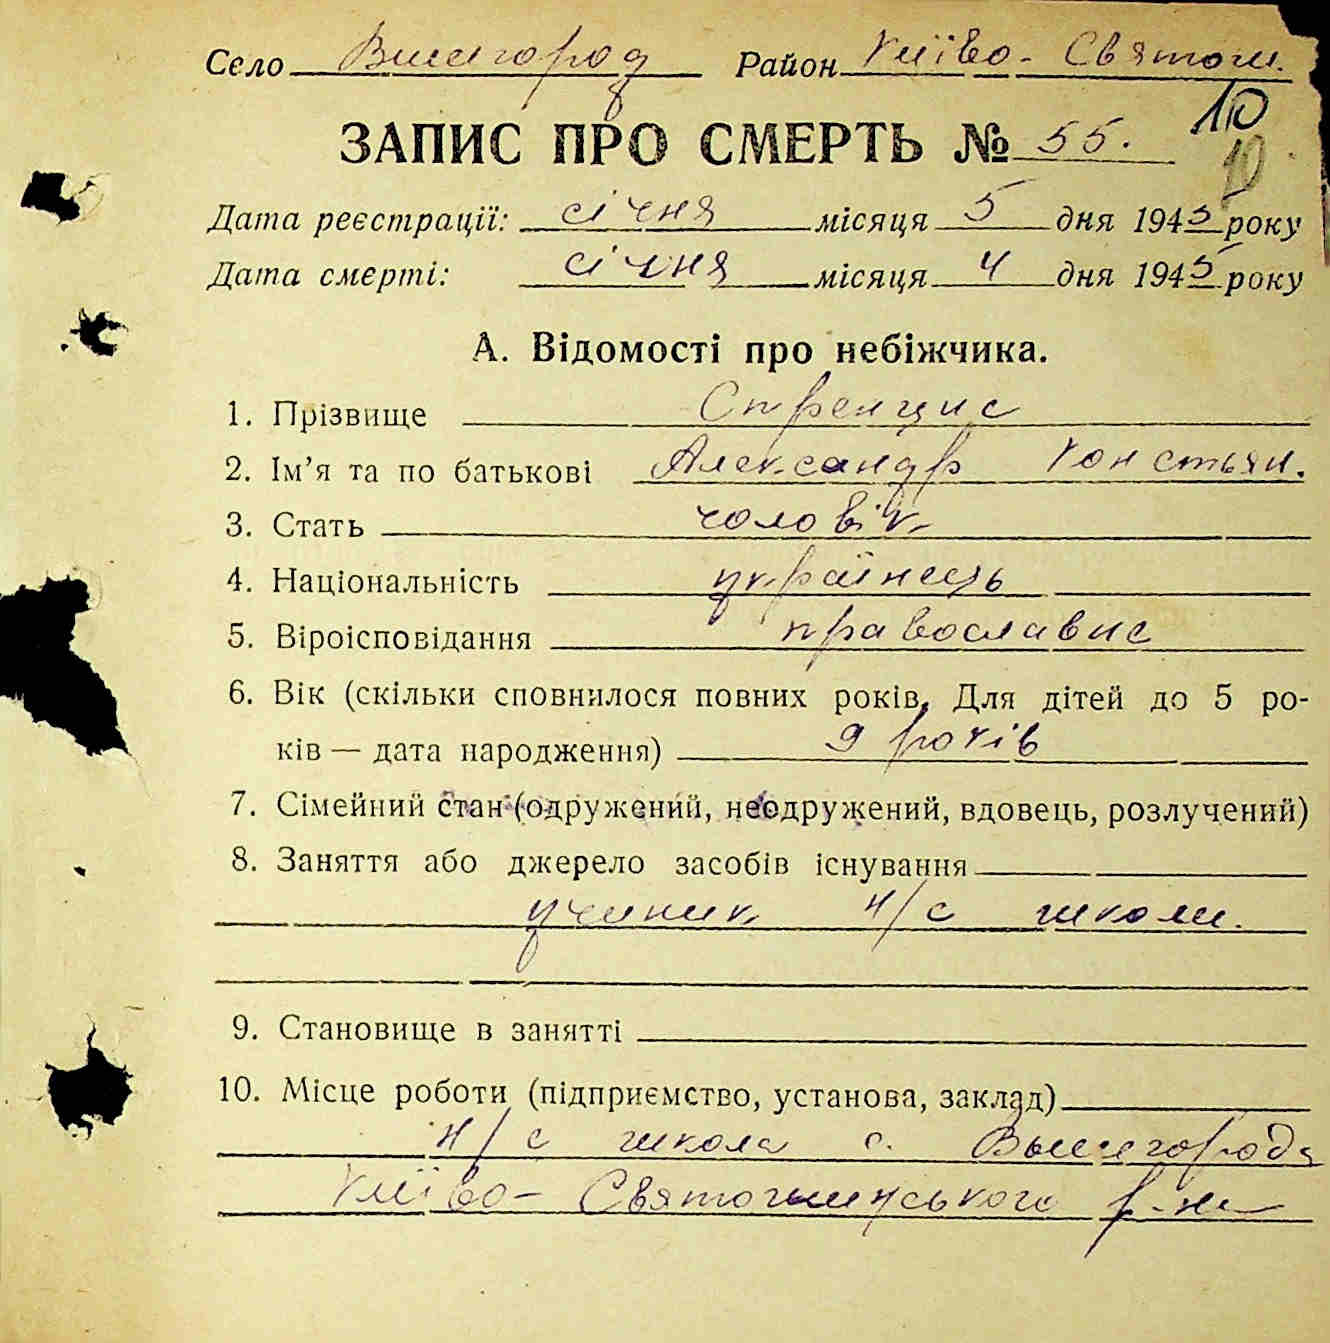 Село Вишгород Район Київо-Святош.
10
ЗАПИС ПРО СМЕРТЬ № 55.
10
Дата реєстрації: січня місяця 5 дня 1943 року
Дата смерті: січня місяця 4 дня 1943 року
А. Відомості про небіжчика.
1. Прізвище
2. Ім'я та по батькові Александр Констян.
3. Стать чоловік
4. Національність українець
5. Віроісповідання православне
6. Вік (скільки сповнилося повних років. Для дітей до 5 ро-
ків — дата народження) 9 років
7. Сімейний стан (одружений, неодружений, вдовець, розлучений)
8. Заняття або джерело засобів існування
ученик н/с школи.
9. Становище в занятті
10. Місце роботи (підприємство, установа, заклад)
н/с школа с. Вышегорода
Київо-Святошинського р-ну